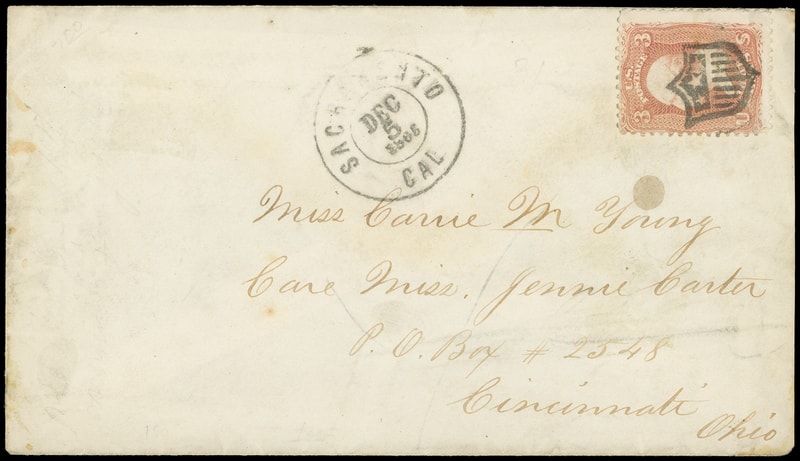 SACRAMENTO
DEC
5
1866
CAL
3 3
U.S.
3 U
Miss Carrie M Young
Care Miss. Jennie Carter
P. O. Box # 2548
Cincinnati
Ohio